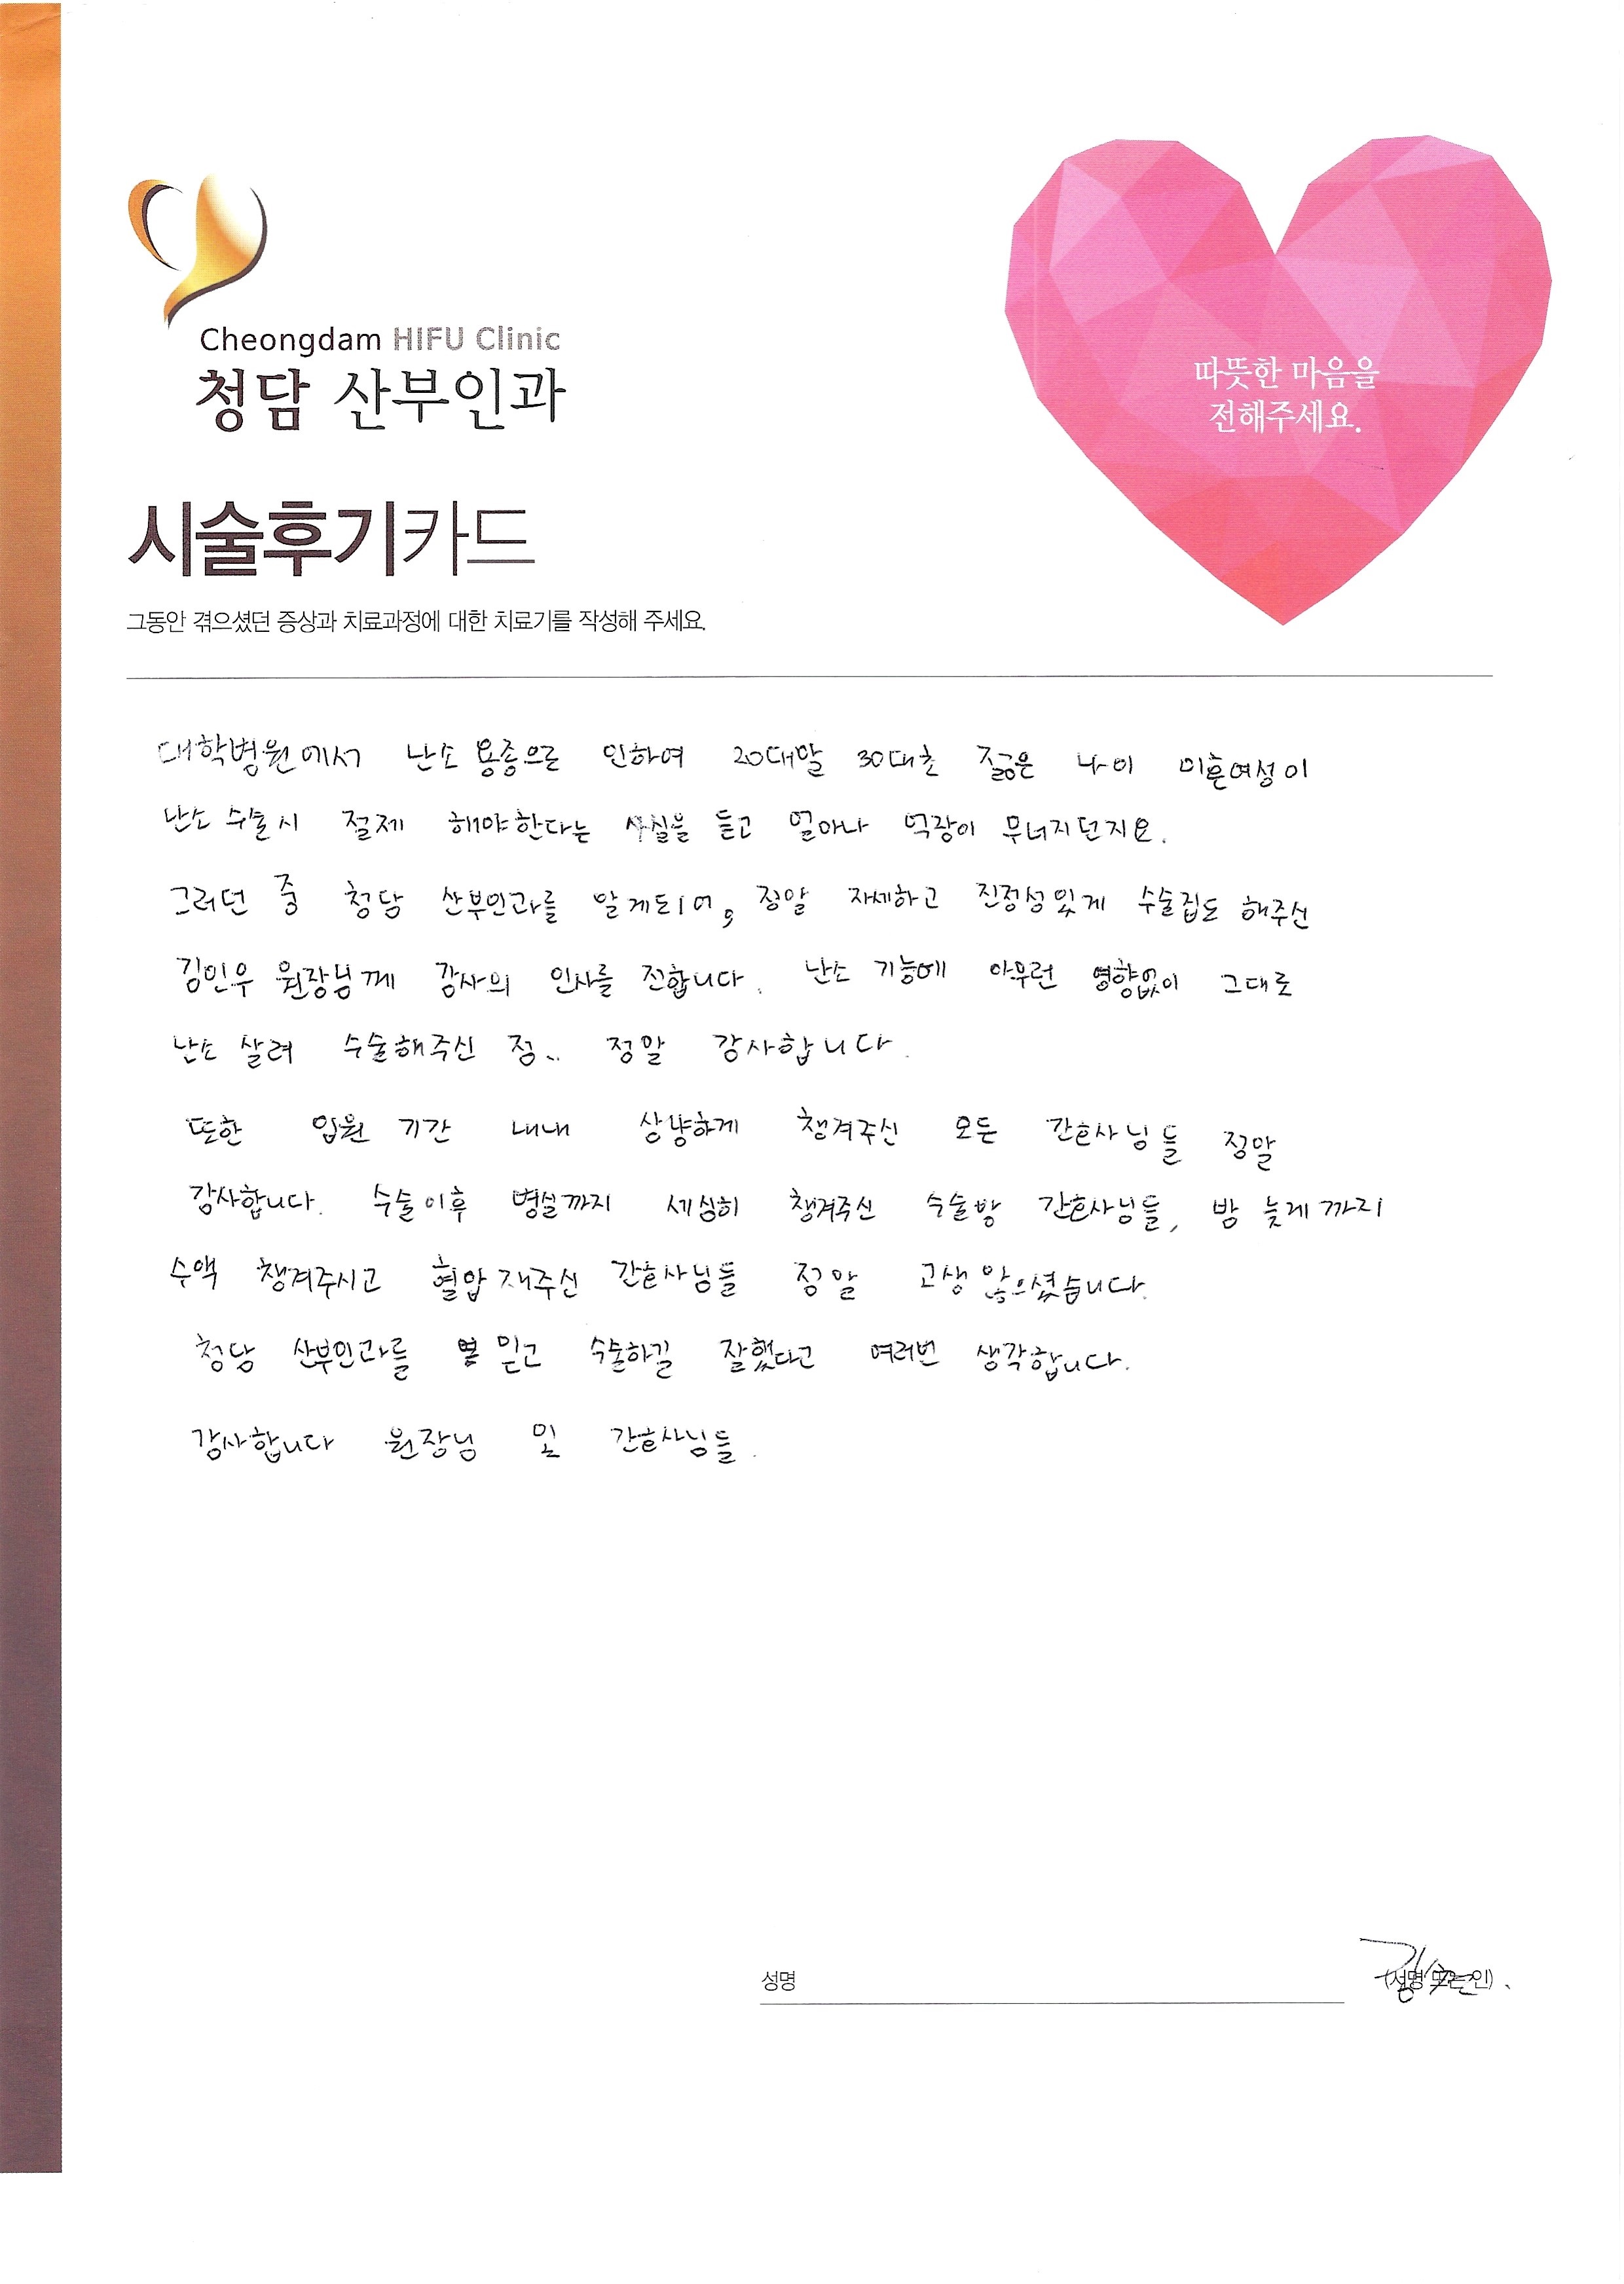 Cheongdam HIFU Clinic
청담 산부인과
따뜻한 마음을
전해주세요.
시술후기카드
그동안 겪으셨던 증상과 치료과정에 대한 치료기를 작성해 주세요.
대학병원에서 난소 용종으로 인하여 20대말 30대초 젊은 나이 미혼여성이
난소 수술시 절제 해야한다는 사실을 듣고 얼마나 억장이 무너지던지요.
그러던 중 청담 산부인과를 알게되어, 정말 자세하고 진정성있게 수술집도 해주신
김민우 원장님께 감사의 인사를 전합니다. 난소 기능에 아무런 영향없이 그대로
난소 살려 수술해주신 점.. 정말 감사합니다.
또한 입원 기간 내내 상냥하게 챙겨주신 모든 간호사님들 정말
감사합니다. 수술이후 병실까지 세심히 챙겨주신 수술방 간호사님들, 밤 늦게까지
수액 챙겨주시고 혈압 재주신 간호사님들 정말 고생 많으셨습니다.
청담 산부인과를 믿고 수술하길 잘했다고 여러번 생각합니다.
감사합니다 원장님 및 간호사님들.
성명
(서명 또는 인)